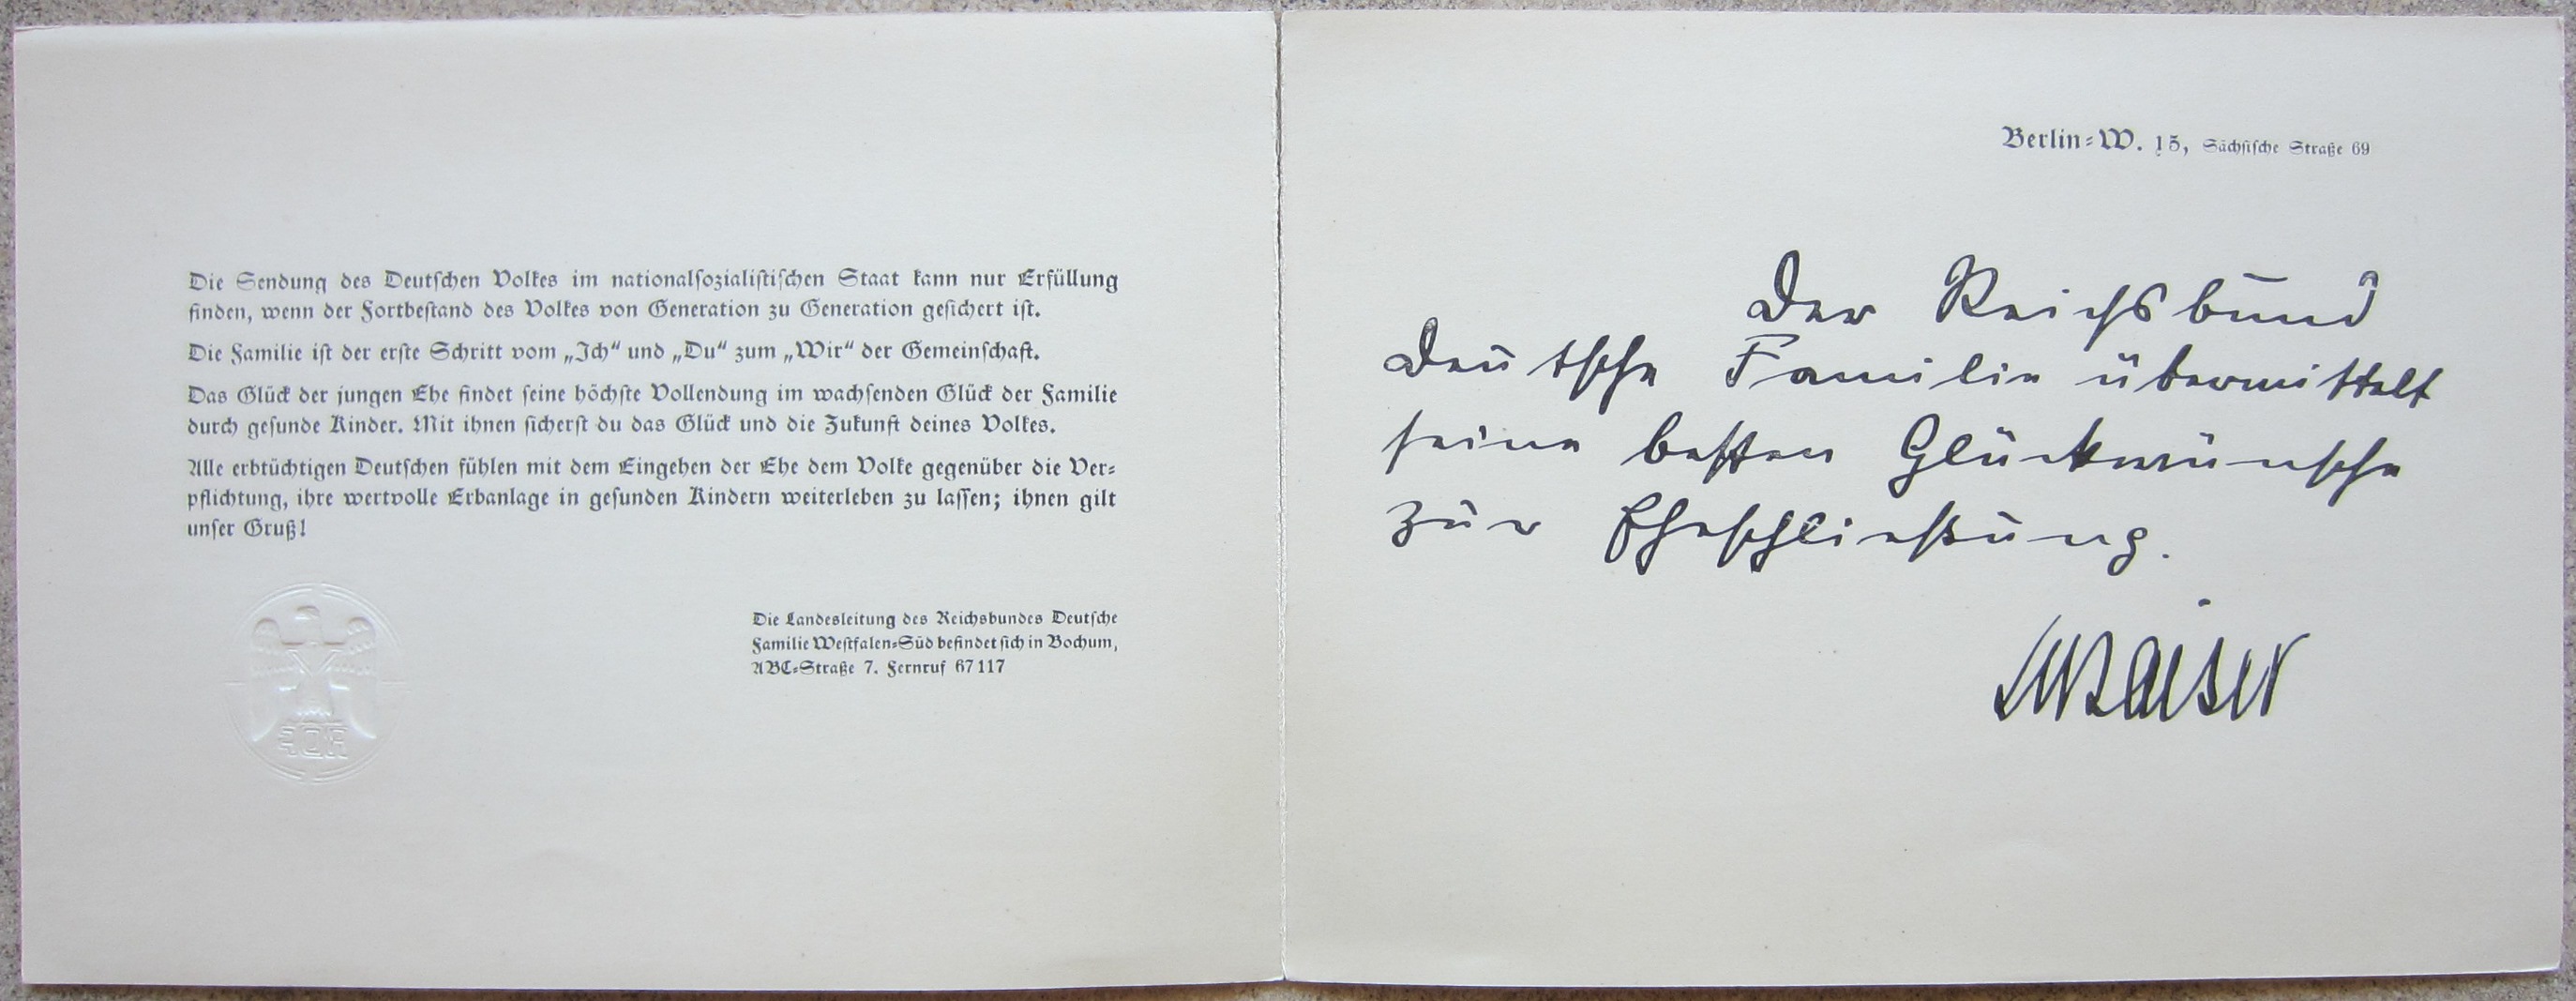 Die Sendung des Deutschen Volkes im nationalsozialistischen Staat kann nur Erfüllung
finden, wenn der Fortbestand des Volkes von Generation zu Generation gesichert ist.
Die Familie ist der erste Schritt vom „Ich“ und „Du“ zum „Wir“ der Gemeinschaft.
Das Glück der jungen Ehe findet seine höchste Vollendung im wachsenden Glück der Familie
durch gesunde Kinder. Mit ihnen sicherst du das Glück und die Zukunft deines Volkes.
Alle erbtüchtigen Deutschen fühlen mit dem Eingehen der Ehe dem Volke gegenüber die Ver-
pflichtung, ihre wertvolle Erbanlage in gesunden Kindern weiterleben zu lassen; ihnen gilt
unser Gruß!
RDF
Die Landesleitung des Reichsbundes Deutsche
Familie Westfalen-Süd befindet sich in Bochum,
ABC-Straße 7. Fernruf 67117
Berlin-W. 15, Sächsische Straße 69
Der Reichsbund
Deutsche Familie übermittelt
seine besten Glückwünsche
zur Eheschließung.